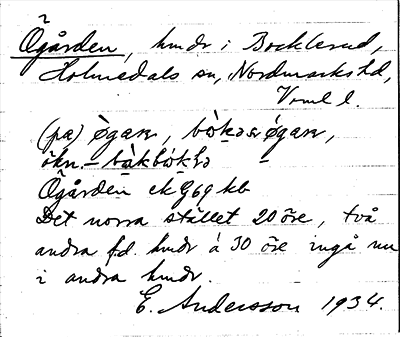 Ögården, hmdr i Bocklerud,
Holmedals sn, Nordmarks hd,
Vrml l.
(pa) ògaɳ, bòkəsògaɳ,
ökn. – bàkbókɦə –
Ögården ek G69 kb
Det norra stället 20 öre, två
andra f.d. hmdr à 30 öre ingå nu
i andra hmdr.
E. Andersson 1934.